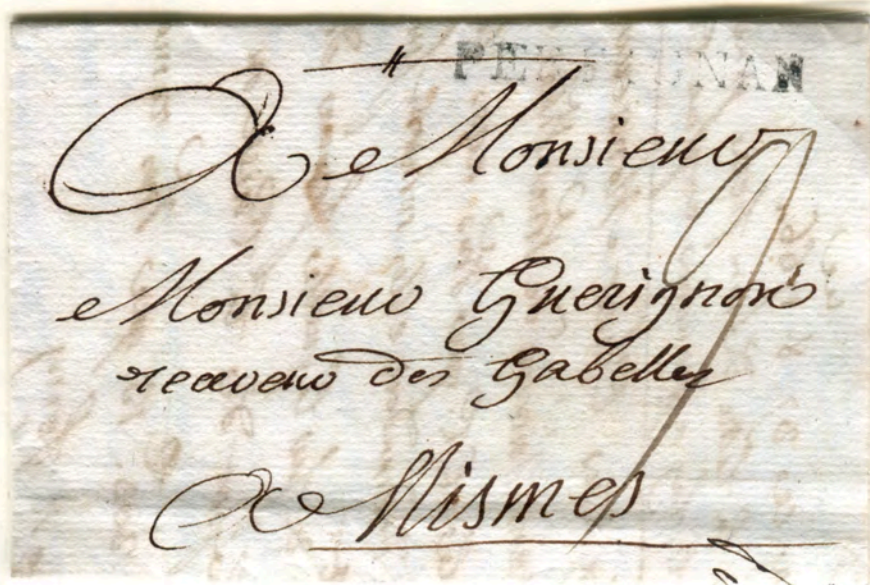 PERPIGNAN
A Monsieur
Monsieur Guerignon
receveur des Gabelles
A Nismes